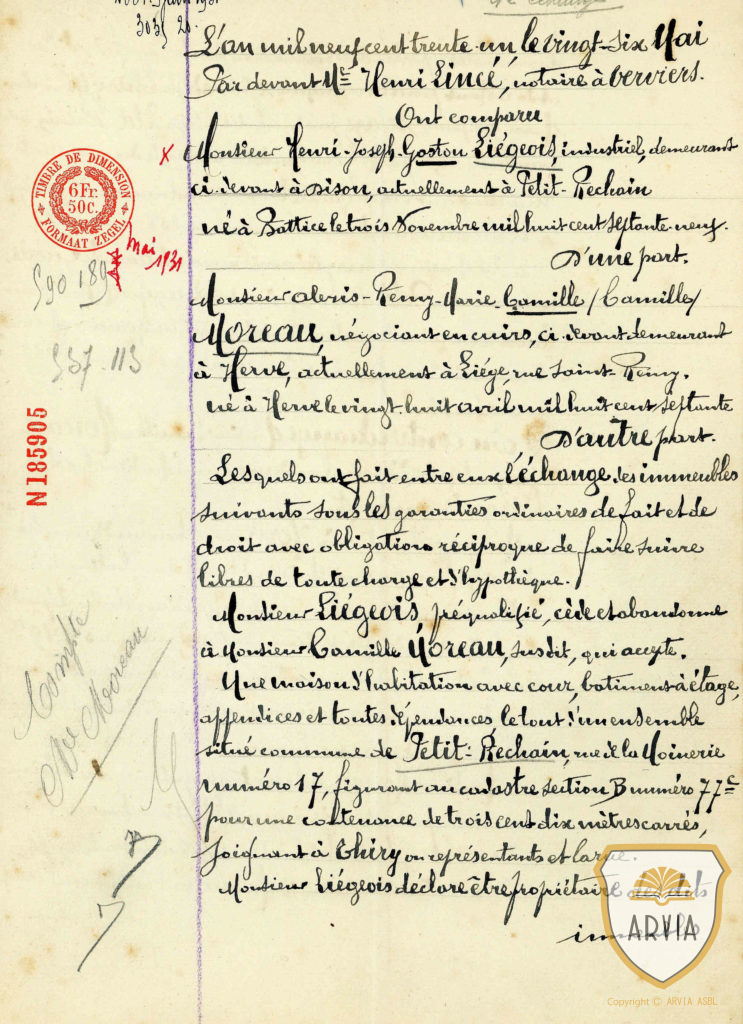 3035 20.
L'an mil neuf cent trente-un le vingt-six Mai
Par devant Mtre Henri Lincé, notaire à Verviers.
Ont comparu
X Monsieur Henri-Joseph-Gaston Liégeois, industriel, demeurant
ci-devant à Dison, actuellement à Petit-Rechain
né à Battice le trois Novembre mil huit cent septante-neuf.
D'une part.
Monsieur Alexis-Remy-Marie-Camille /Camille/
Moreau, négociant en cuirs, ci-devant demeurant
à Herve, actuellement à Liége, rue Saint-Remy.
né à Herve le vingt-huit avril mil huit cent septante
D'autre part.
Lesquels ont fait entre eux l'échange des immeubles
suivants sous les garanties ordinaires de fait et de
droit avec obligation réciproque de faire suivre
libres de toute charge et d'hypothèque.
Monsieur Liégeois, préqualifié, cède et abandonne
à Monsieur Camille Moreau, susdit, qui accepte.
Une maison d'habitation avec cour, batiment à étage,
appendices et toutes dépendances le tout d'un ensemble
situé commune de Petit-Rechain, rue de la Moinerie
numéro 17, figurant au cadastre section B numéro 77c
pour une contenance de trois cent dix mètres carrés,
joignant à Thiry ou représentants et la rue.
Monsieur Liégeois déclare être propriétaire des dits
immeuble
TIMBRE DE DIMENSION
6Fr.
50C.
FORMAAT ZEGEL
mai
1931
590 189
537-113
N185905
Compte
Moreau
ARVIA
Copyright © ARVIA ASBL